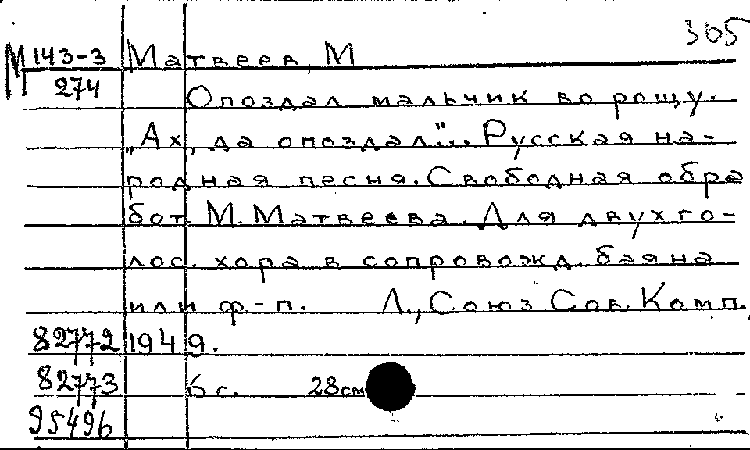 305
М 143-3 Матвеев М
274
Опоздал мальчик во рощу.
„Ах, да опоздал"... Русская на-
родная песня. Свободная обра
бот М. Матвеева. Для двухго-
лос. хора в сопровожд. баяна
или ф-п. Л., Союз Сов. Комп.
82772 1949.
82773 6 с. 28см
95496